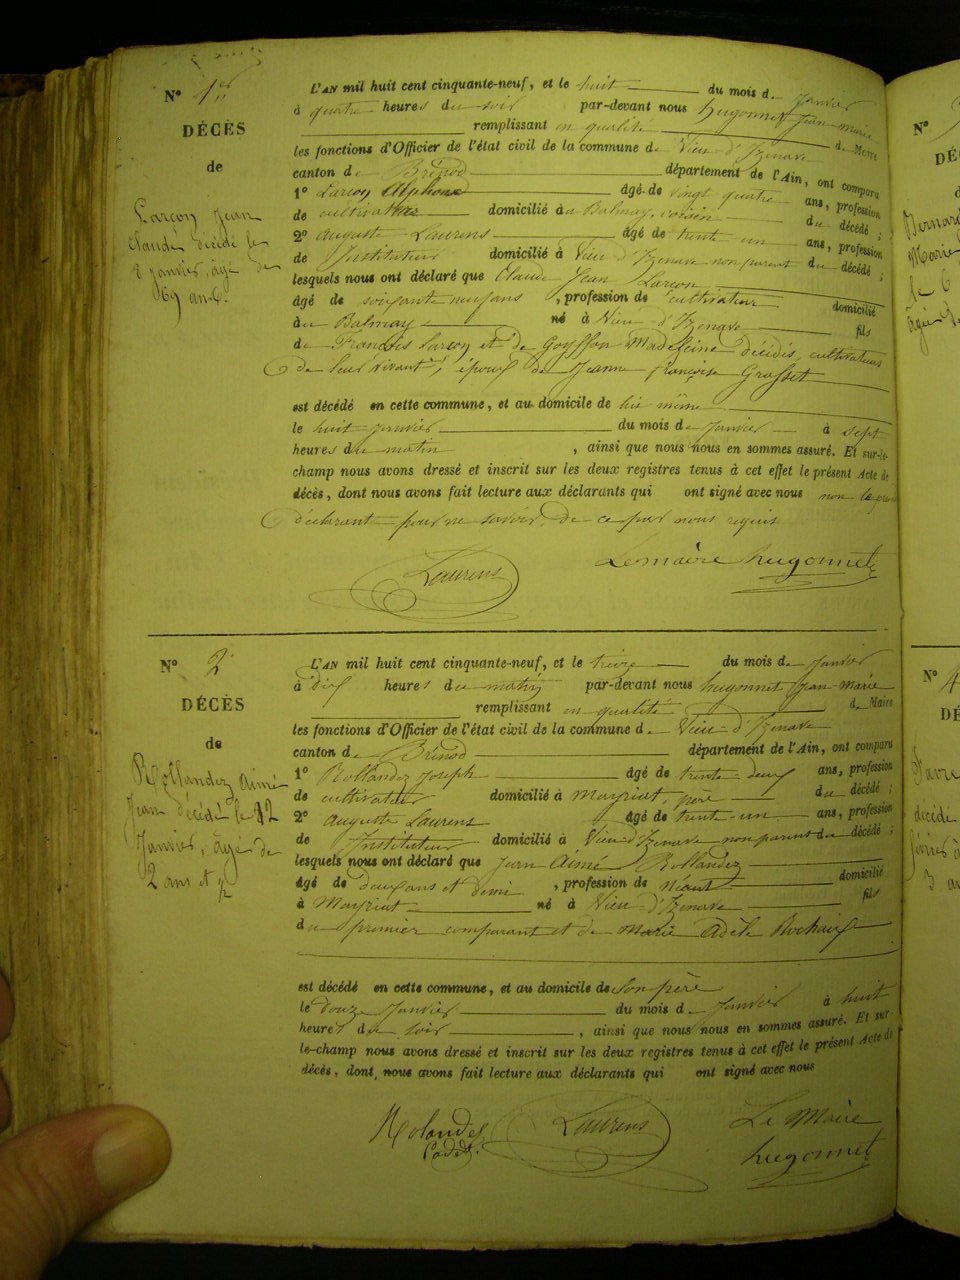 N° 1er
DÉCÈS
de
Larçon Jean
Claude décédé le
8 Janvier, âgé de
69 ans.
L'AN mil huit cent cinquante-neuf, et le huit du mois de Janvier
à quatre heures du soir par-devant nous hugonnet Jean marie
remplissant en qualité de Maire
les fonctions d'Officier de l'état civil de la commune de Vieu-d'Izenave
canton de Brénod département de l'Ain, ont comparu
1° Larçon Alphonse âgé de vingt quatre ans, profession
de cultivateur domicilié au Balmay, voisin du décédé ;
2° Auguste Laurens âgé de trente un ans, profession
de Instituteur domicilié à Vieu d'Izenave non parent du décédé ;
lesquels nous ont déclaré que Claude Jean Larçon
âgé de soixante neuf ans , profession de cultivateur domicilié
au Balmay né à Vieu-d'Izenave fils
de François Larçon et de Goyffon Madeleine décédés, cultivateurs
de leur vivant, époux de Jeanne françoise Grosset
est décédé en cette commune, et au domicile de lui même
le huit janvier du mois de Janvier à sept
heures du matin , ainsi que nous nous en sommes assuré. Et sur-le-
champ nous avons dressé et inscrit sur les deux registres tenus à cet effet le présent Acte de
décès, dont nous avons fait lecture aux déclarants qui ont signé avec nous non le
déclarant pour ne savoir, de ce par nous requis
Laurens Lemaire hugonnet
N° 2
DÉCÈS
de
Rollandez Aimé
Jean décédé le 12
Janvier, âgé de
2 ans et ½
L'AN mil huit cent cinquante-neuf, et le treize du mois de Janvier
à dix heures du matin par-devant nous hugonnet Jean-marie
remplissant en qualité de Maire
les fonctions d'Officier de l'état civil de la commune de Vieu-d'Izenave
canton de Brénod département de l'Ain, ont comparu
1° Rollandez Joseph âgé de trente-deux ans, profession
de cultivateur domicilié à Mayriat, père du décédé ;
2° Auguste Laurens âgé de trente-un ans, profession
de Instituteur domicilié à Vieu-d'Izenave non parent du décédé ;
lesquels nous ont déclaré que Jean Aimé Rollandez
âgé de deux ans et demi , profession de néant domicilié
à Mayriat né à Vieu d'Izenave fils
du premier comparant et de Marie Adèle Rochaix
est décédé en cette commune, et au domicile de son père
le douze Janvier du mois de Janvier à huit
heures du soir , ainsi que nous nous en sommes assuré. Et sur-
le-champ nous avons dressé et inscrit sur les deux registres tenus à cet effet le présent Acte de
décès, dont nous avons fait lecture aux déclarants qui ont signé avec nous
Rolandez Laurens Le Maire
Cadet. hugonnet
N°
Bernard
Marie
le 6
âgée
N° 4
Favre
décédé
3 an